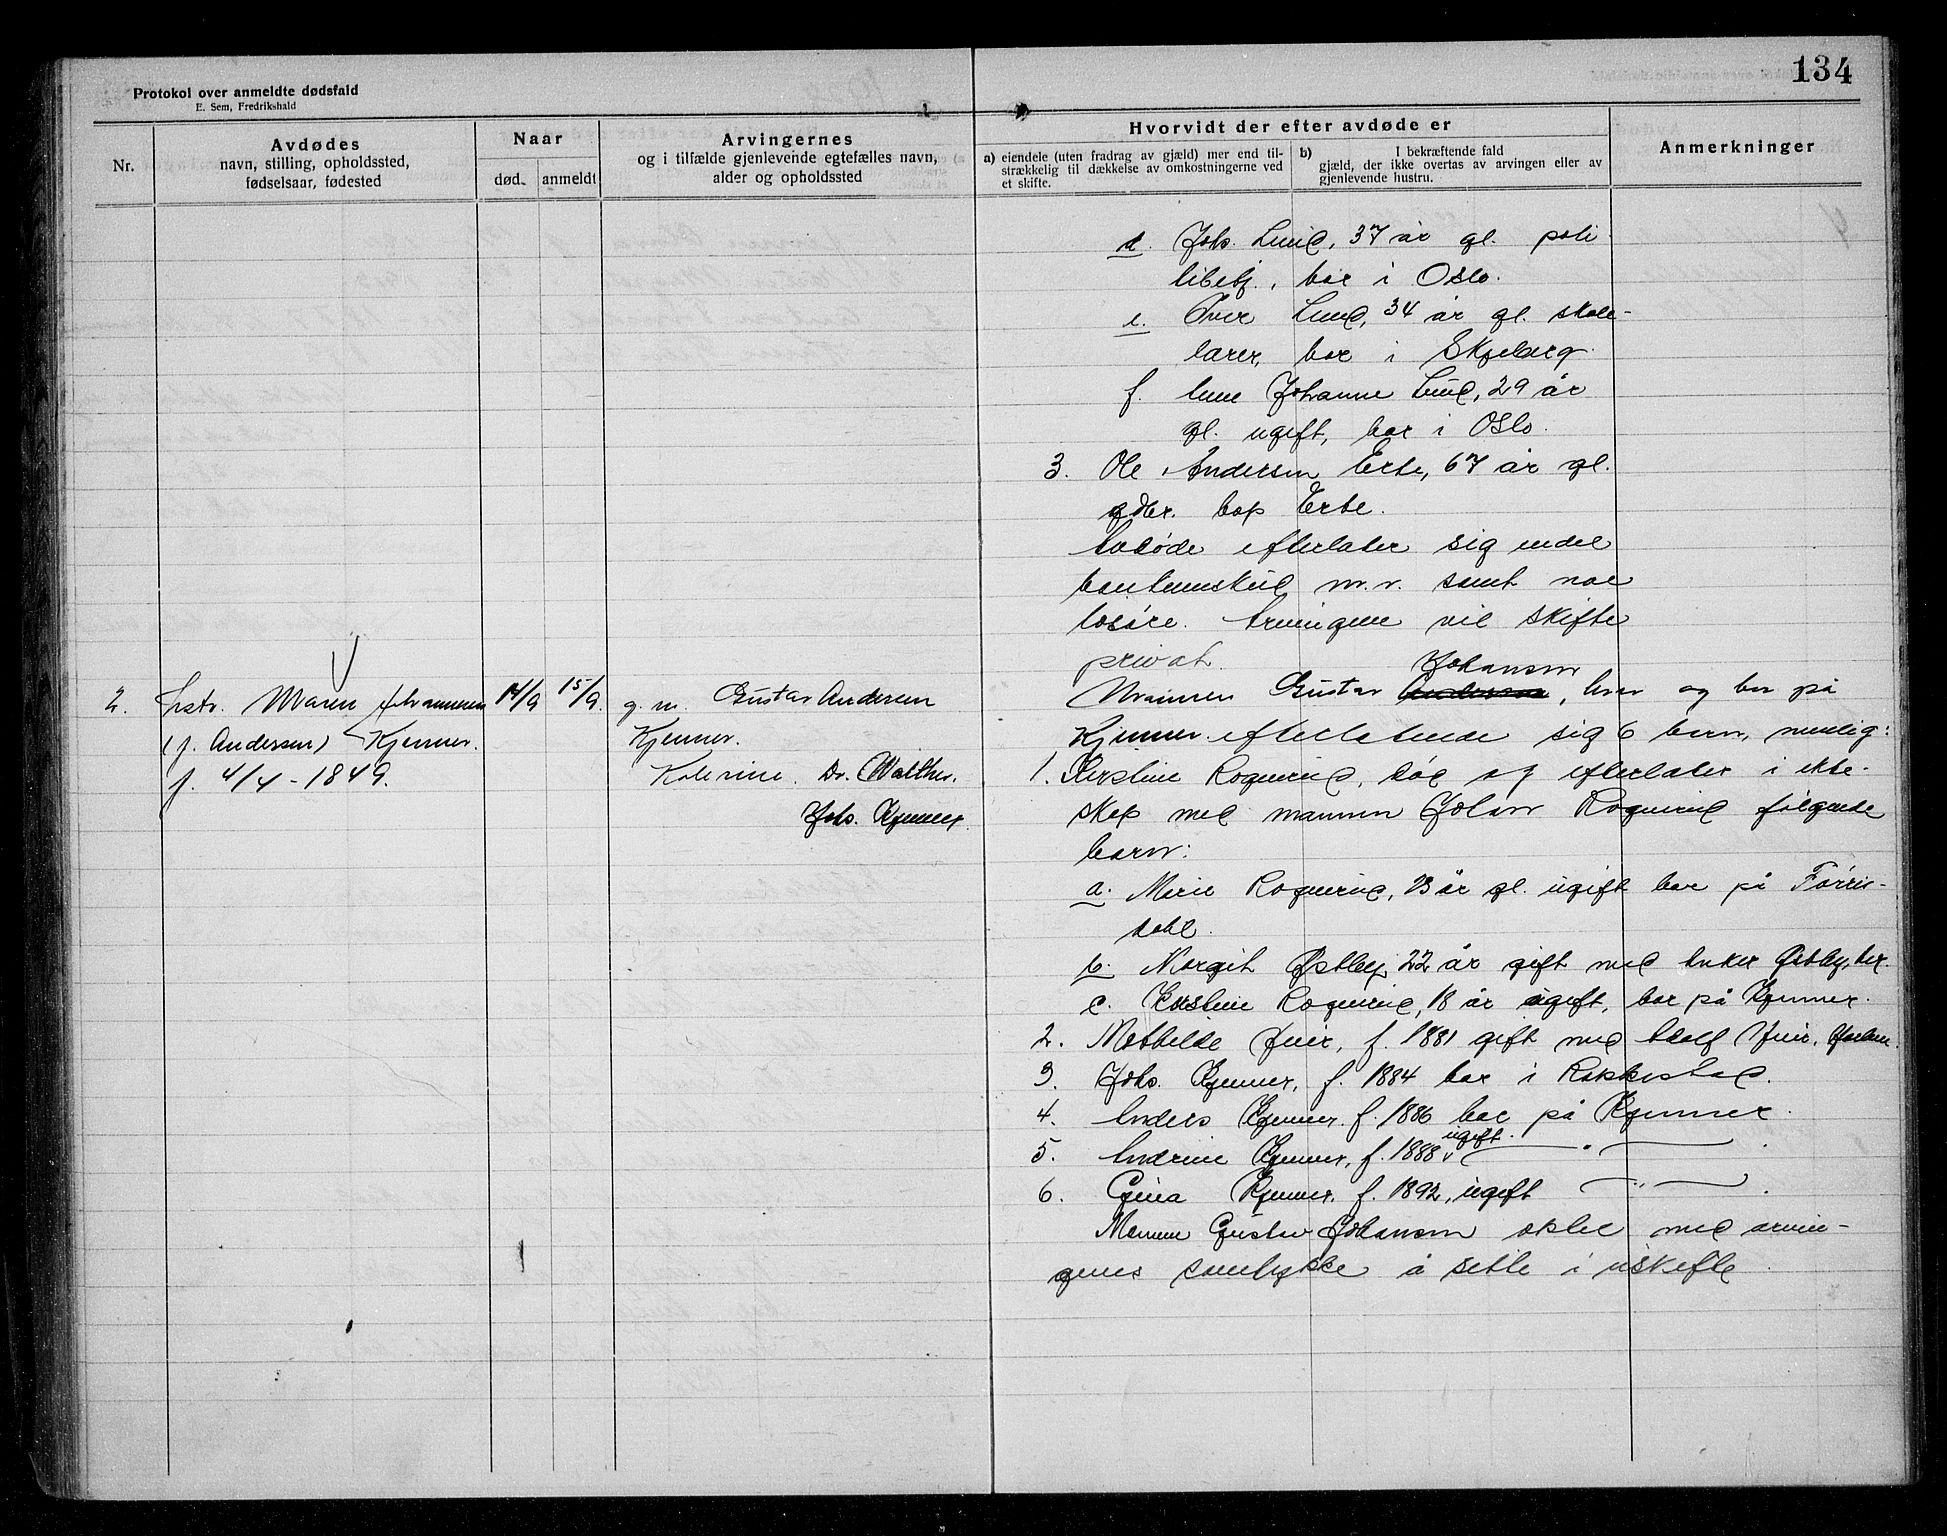 134
Protokol over anmeldte dødsfald
E. Sem, Fredrikshald
Nr.
Avdødes
navn, stilling, opholdssted,
fødselsaar, fødested
Naar
død.
anmeldt
Arvingernes
og i tilfælde gjenlevende egtefælles navn,
alder og opholdssted
Hvorvidt der efter avdøde er
a) eiendele (uten fradrag av gjæld) mer end til-
strækkelig til dækkelse av omkostningerne ved
et skifte.
b) I bekræftende fald
gjæld, der ikke overtas av arvingen eller av
gjenlevende hustru.
Anmerkninger
d. Johs. Lund, 37 år gl. poli
tibetj., bor i Oslo.
e. Iver Lund, 34 år gl. skole-
lærer, bor i Skjeberg.
f. Anne Johanne Lund, 29 år
gl. ugift, bor i Oslo.
3. Ole Andersen Erte, 67 år gl.
gdbr. Erte.
Avdøde efterlater sig endel
m.v. samt noe
løsøre. Arvingene vil skifte
privat.
2. Hstr. Maren Johannesen
(f. Andersen) Kjenner.
f. 4/4 - 1849.
14/9
15/9.
g. m. Gustav Andersen
Kjenner.
Dr. Walther.
Johs. Kjenner.
Johansen
Mannen Gustav Andersen, lever og bor på
Kjenner efterlatende sig 6 barn, nemlig:
1. Kirstine Rognerud, død og efterlater i ekte-
skap med mannen Johan Rognerud følgende
barn:
a. Marie Rognerud, 23 år gl. ugift bor på Førris-
dahl.
b. Margit Østby, 22 år gift med Anker Østby, her.
c. Kirstine Rognerud, 18 år ugift, bor på Kjenner.
2. Mathilde Juir, f. 1881 gift med Adolf Juir,
3. Johs. Kjenner, f. 1884 bor i Rakkestad.
4. Anders Kjenner f. 1886 bor på Kjenner.
5. Andrine Kjenner, f. 1888, ugift — " — .
6. Gina Kjenner f. 1892, ugift — " — .
Mannen Gustav Johansen akter med arvin-
genes samtykke å sitte i uskifte.